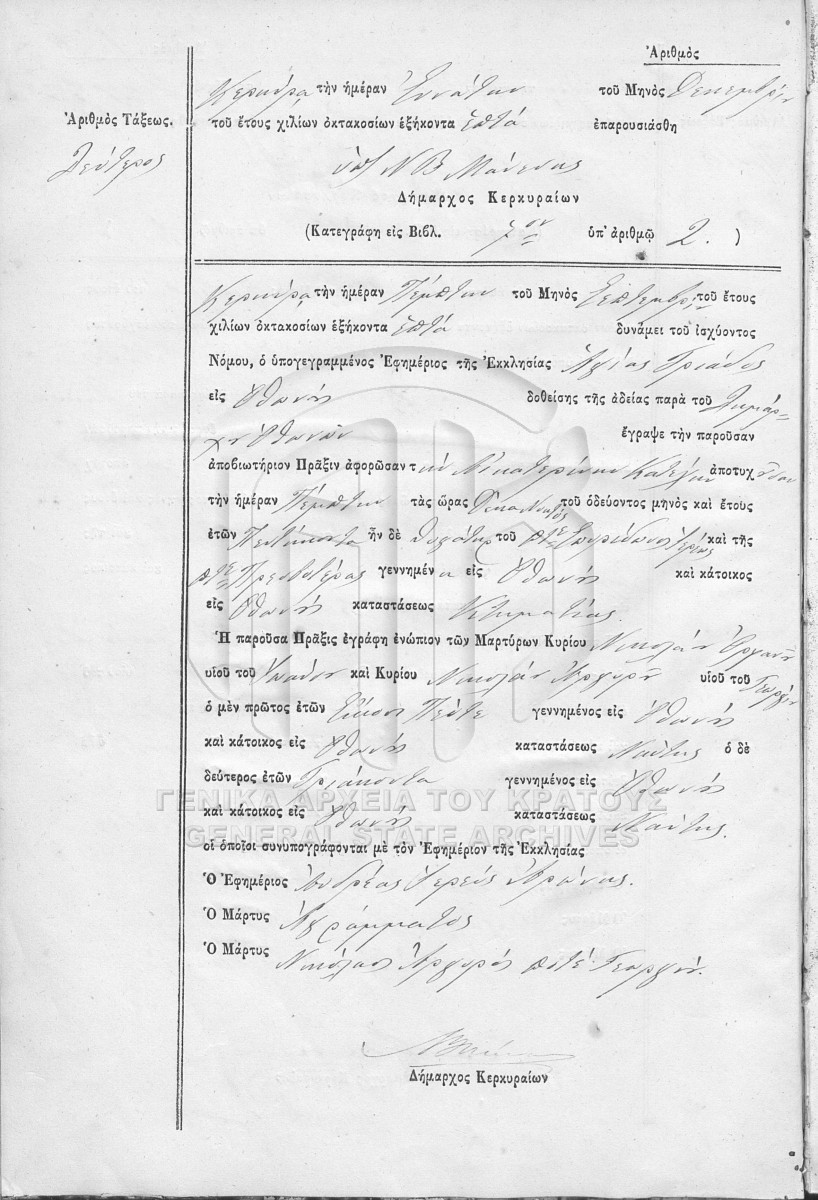 Ἀριθμὸς
Κερκύρᾳ τὴν ἡμέραν Ἐννάτην τοῦ Μηνὸς Δεκεμβρίου
Ἀριθμὸς Τάξεως.
τοῦ ἔτους χιλίων ὀκτακοσίων ἑξήκοντα ἑπτά ἐπαρουσιάσθη
Δεύτερος
Ν Β Μάνεσης
Δήμαρχος Κερκυραίων
(Κατεγράφη εἰς Βιβλ. 7ον ὑπ' ἀριθμῷ 2. )
Κερκύρᾳ τὴν ἡμέραν Πέμπτην τοῦ Μηνὸς Σεπτεμβρίου τοῦ ἔτους
χιλίων ὀκτακοσίων ἑξήκοντα ἑπτά δυνάμει τοῦ ἰσχύοντος
Νόμου, ὁ ὑπογεγραμμένος Ἐφημέριος τῆς Ἐκκλησίας Ἁγίας Τριάδος
εἰς Ὀθωνούς δοθείσης τῆς ἀδείας παρὰ τοῦ Δημάρ-
χου Ὀθωνῶν ἔγραψε τὴν παροῦσαν
ἀποβιωτήριον Πρᾶξιν ἀφορῶσαν τὴν Αἰκατερίνην ἀποτυχοῦσαν
τὴν ἡμέραν Πέμπτην τὰς ὥρας τοῦ ὁδεύοντος μηνὸς καὶ ἔτους
ἐτῶν Πεντήκοντα ἦν δὲ θυγάτηρ τοῦ ποτέ Σπυρίδωνος ἱερέως καὶ τῆς
ποτέ Πρεσβυτέρας γεννημένη εἰς Ὀθωνούς καὶ κάτοικος
εἰς Ὀθωνούς καταστάσεως Κτηματίας.
Ἡ παροῦσα Πρᾶξις ἐγράφη ἐνώπιον τῶν Μαρτύρων Κυρίου Νικολάου
υἱοῦ τοῦ καὶ Κυρίου Νικολάου Ἀργυροῦ υἱοῦ τοῦ Γεωργίου
ὁ μὲν πρῶτος ἐτῶν Εἴκοσι Πέντε γεννημένος εἰς Ὀθωνούς
καὶ κάτοικος εἰς Ὀθωνούς καταστάσεως Ναύτης ὁ δὲ
δεύτερος ἐτῶν Τριάκοντα γεννημένος εἰς Ὀθωνούς
καὶ κάτοικος εἰς Ὀθωνούς καταστάσεως Ναύτης.
οἱ ὁποῖοι συνυπογράφονται μὲ τὸν Ἐφημέριον τῆς Ἐκκλησίας
Ὁ Ἐφημέριος Ἀνδρέας Ἱερεύς
Ὁ Μάρτυς Ἀγράμματος
Ὁ Μάρτυς Νικόλαος Ἀργυρός ποτέ Γεωργίου.
Δήμαρχος Κερκυραίων
ΓΕΝΙΚΑ ΑΡΧΕΙΑ ΤΟΥ ΚΡΑΤΟΥΣ
GENERAL STATE ARCHIVES